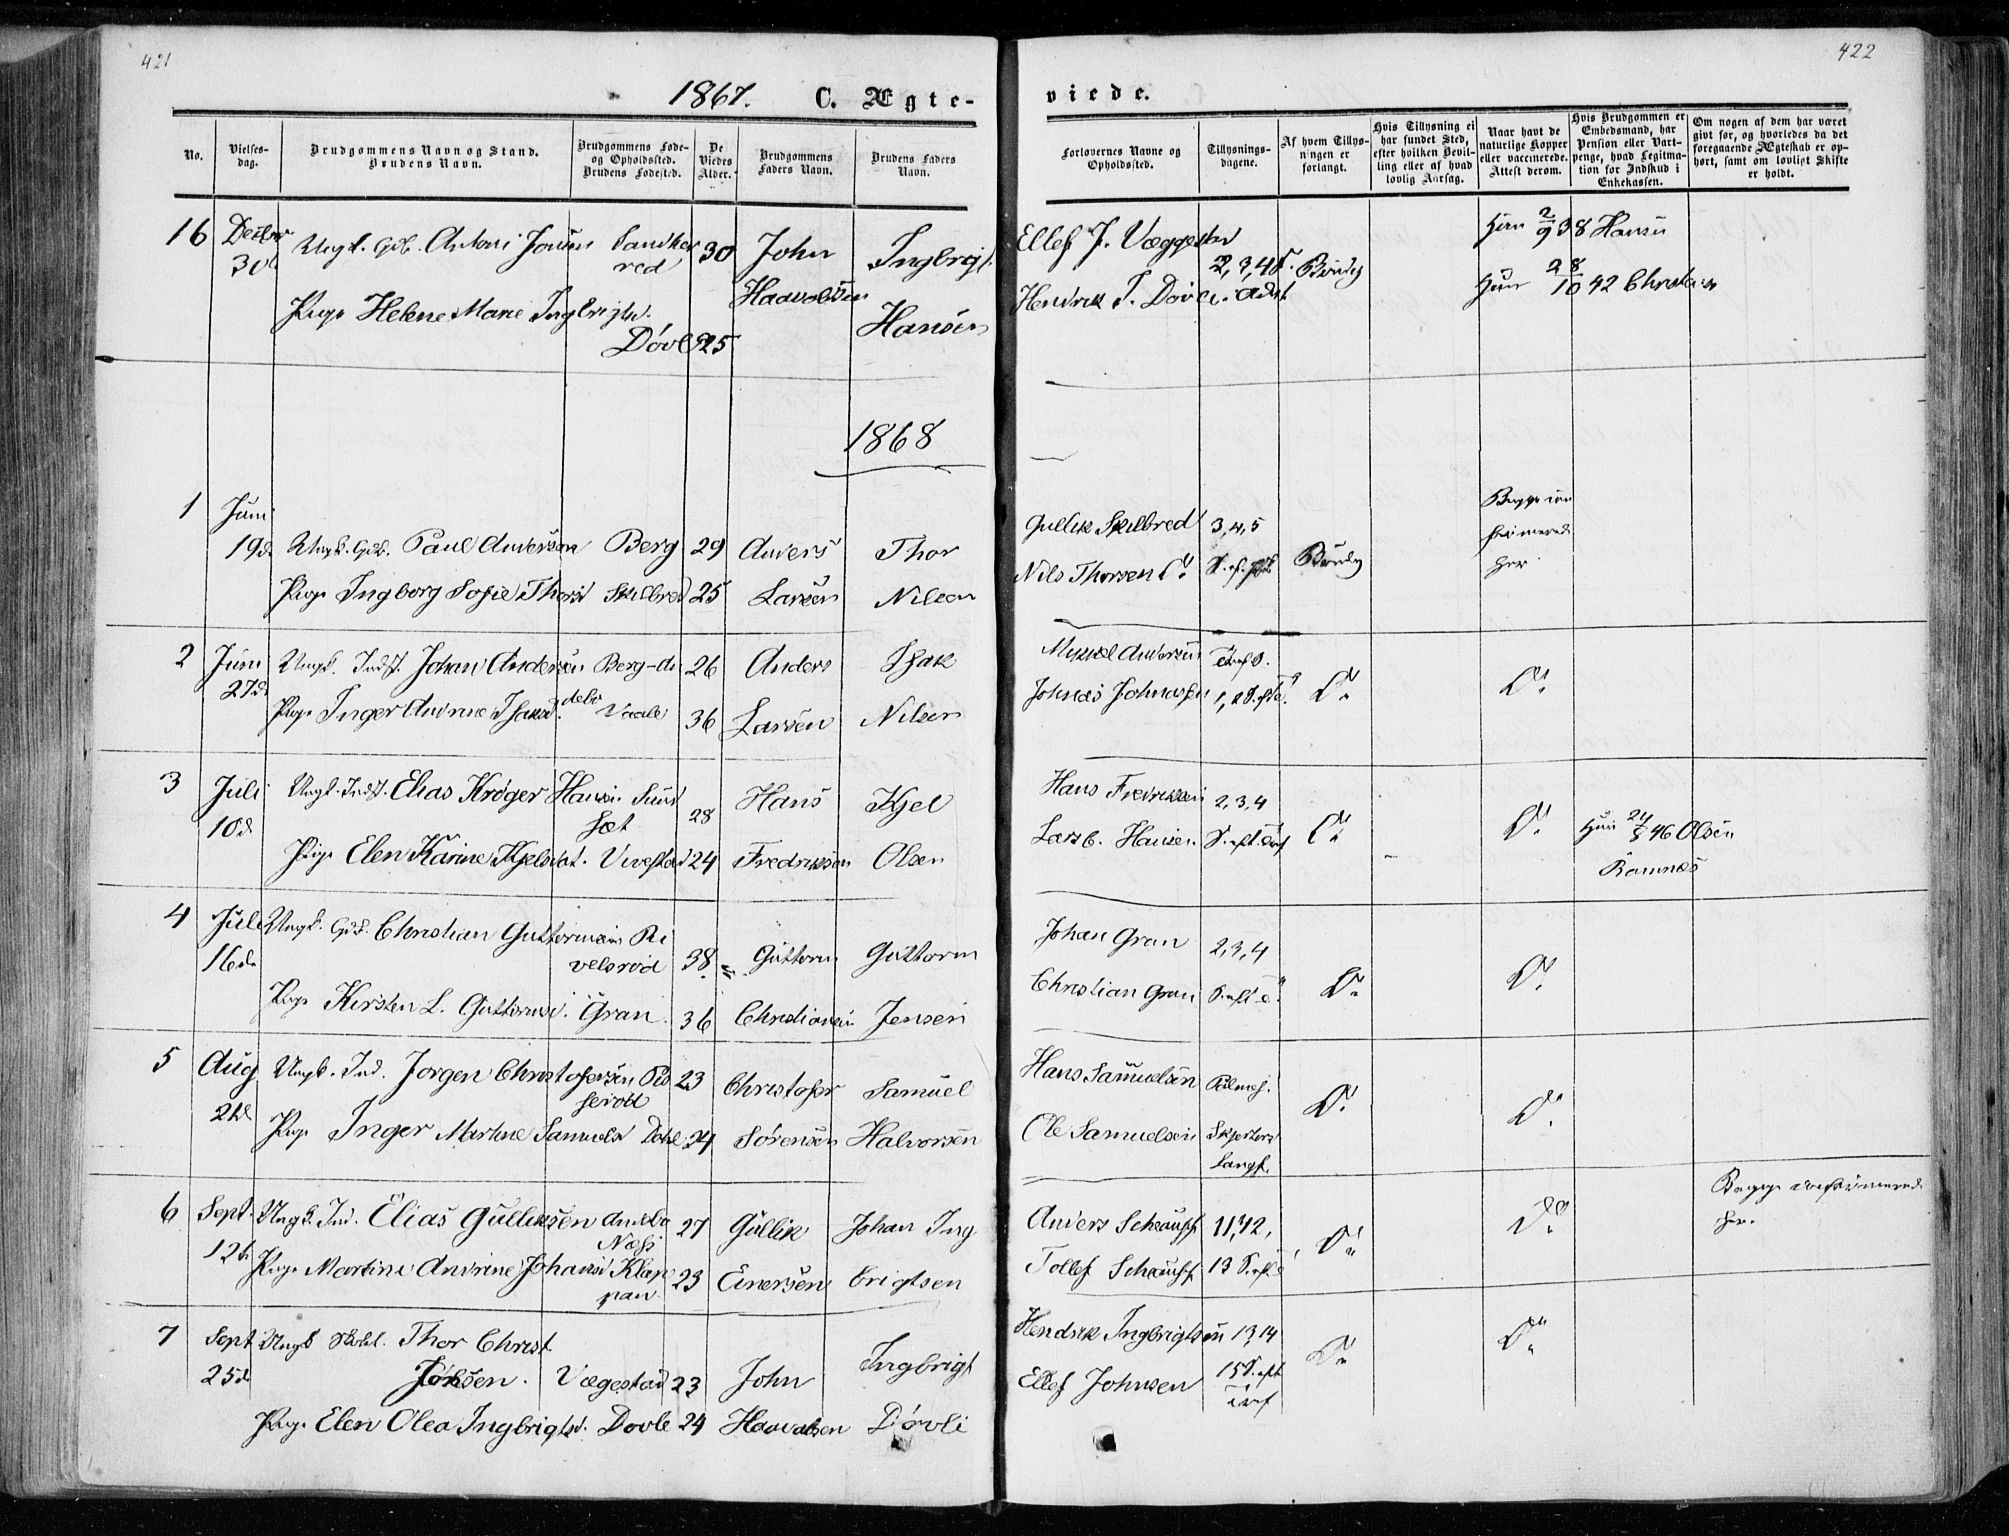 421
422
1867. C. Ægte-
viede.
No.
Vielses-
dag.
Brudgommens Navn og Stand.
Brudens Navn.
Brudgommens Føde-
og Opholdssted.
Brudens Fødested.
De
Viedes
Alder.
Brudgommens
Faders Navn.
Brudens Faders
Navn.
Forlovernes Navne og
Opholdssted.
Tillysnings-
dagene.
Af hvem Tillys-
ningen er
forlangt.
Hvis Tillysning ei
har fundet Sted,
efter hvilken Bevil-
ling eller af hvad
lovlig Aarsag.
Naar havt de
naturlige Kopper
eller vaccinerede.
Attest derom.
Hvis Brudgommen er
Embedsmand, har
Pension eller Vart-
penge, hvad Legitima-
tion for Indskud i
Enkekassen.
Om nogen af dem har været
givt før, og hvorledes da det
foregaaende Ægteskab er op-
hørt, samt om lovligt Skifte
er holdt.
16
30
Antoni
Sandke
rød
30
John
Haavoldsen
Ingbrigt
Hansen
Pige Helene Marie Ingbrigtsd.
Dovle
25
Ellef J. Væggestad
Hendrik I. Dovle
2, 3, 4
Ham 2/9 38 Hansen
Hun 28/10 42 Christensen
1868
1
Juni
19d.
Ungk. Gdb. Paul Andersen
Berg
29
Anders
Larsen
Thor
Nilsen
Pige Ingborg Sofie Thorsd Skilbred
25
Gullik Skilbred
Nils Thorsen do
3, 4, 5
2
Juni
27d.
Ungk. Indst. Johan Andersen
Berg
26
Anders
Larsen
Isak
Nilsen
Pige Inger Andrine Isaksd.
Vaale
36
Mikkel Andersen
Johnas Johnasen
Do
Do
3
Juli
10d
Ungk. Indst. Elias Krøger Hansen
28
Hans
Fredriksen
Kjel
Olsen
Pige Elen Karine Kjelsdat. Vivestad
24
Hans Fredriksen
Lars C. Hansen
2, 3, 4
Do
Do
Hun 24/8 46 Olsen
Ramnes
4
Juli
16d.
Ungk. Gdb. Christian Guttormsen Re
velsrød
38
Guttorm
Christiansen
Guttorm
Jensen
Pige Kirsten L. Guttormsd. Gran
36
Johan Gran
Christian Gran
2, 3, 4
Do
Do
5
Aug
21d
Ungk. Ind. Jørgen Christofersen
23
Christofer
Sørensen
Samuel
Halvorsen
Pige Inger Martine Samuelsd
24
Hans Samuelsen
Ole Samuelsen
Palmes.
Langf.
Do
Do
6
Sept.
12d
Ungk. Ind. Elias Gulliksen
27
Gullik
Einersen
Johan Ing
brigtsen
Pige Martine Andrine Johansd Klop
pan
23
Anders Schauff
Tollef Schauff
11, 12,
13
Do
Do
Begge
her.
7
Sept
25d
Ungk Thor Christ
Johsen.
Vægestad
23
John
Haavalsen
Ingbrigt
Dovli
Pige Elen Olea Ingbrigtsd. Dovle
24
Hendrik Ingbrigtsen
Ellef Johnsen
13, 14
15
Do
Do